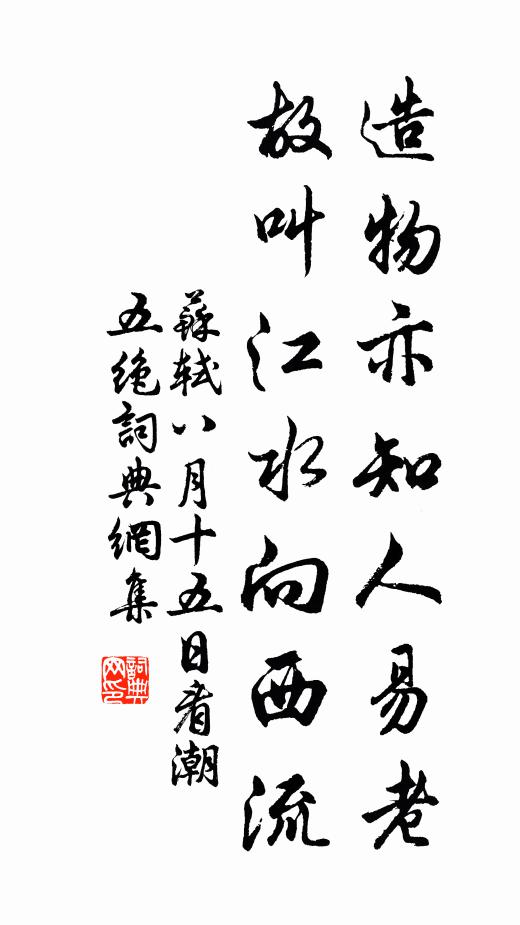 造物亦知人易老
故叫江水向西流
蘇軾八月十五日看潮
五絶詞典網集
詞典网印